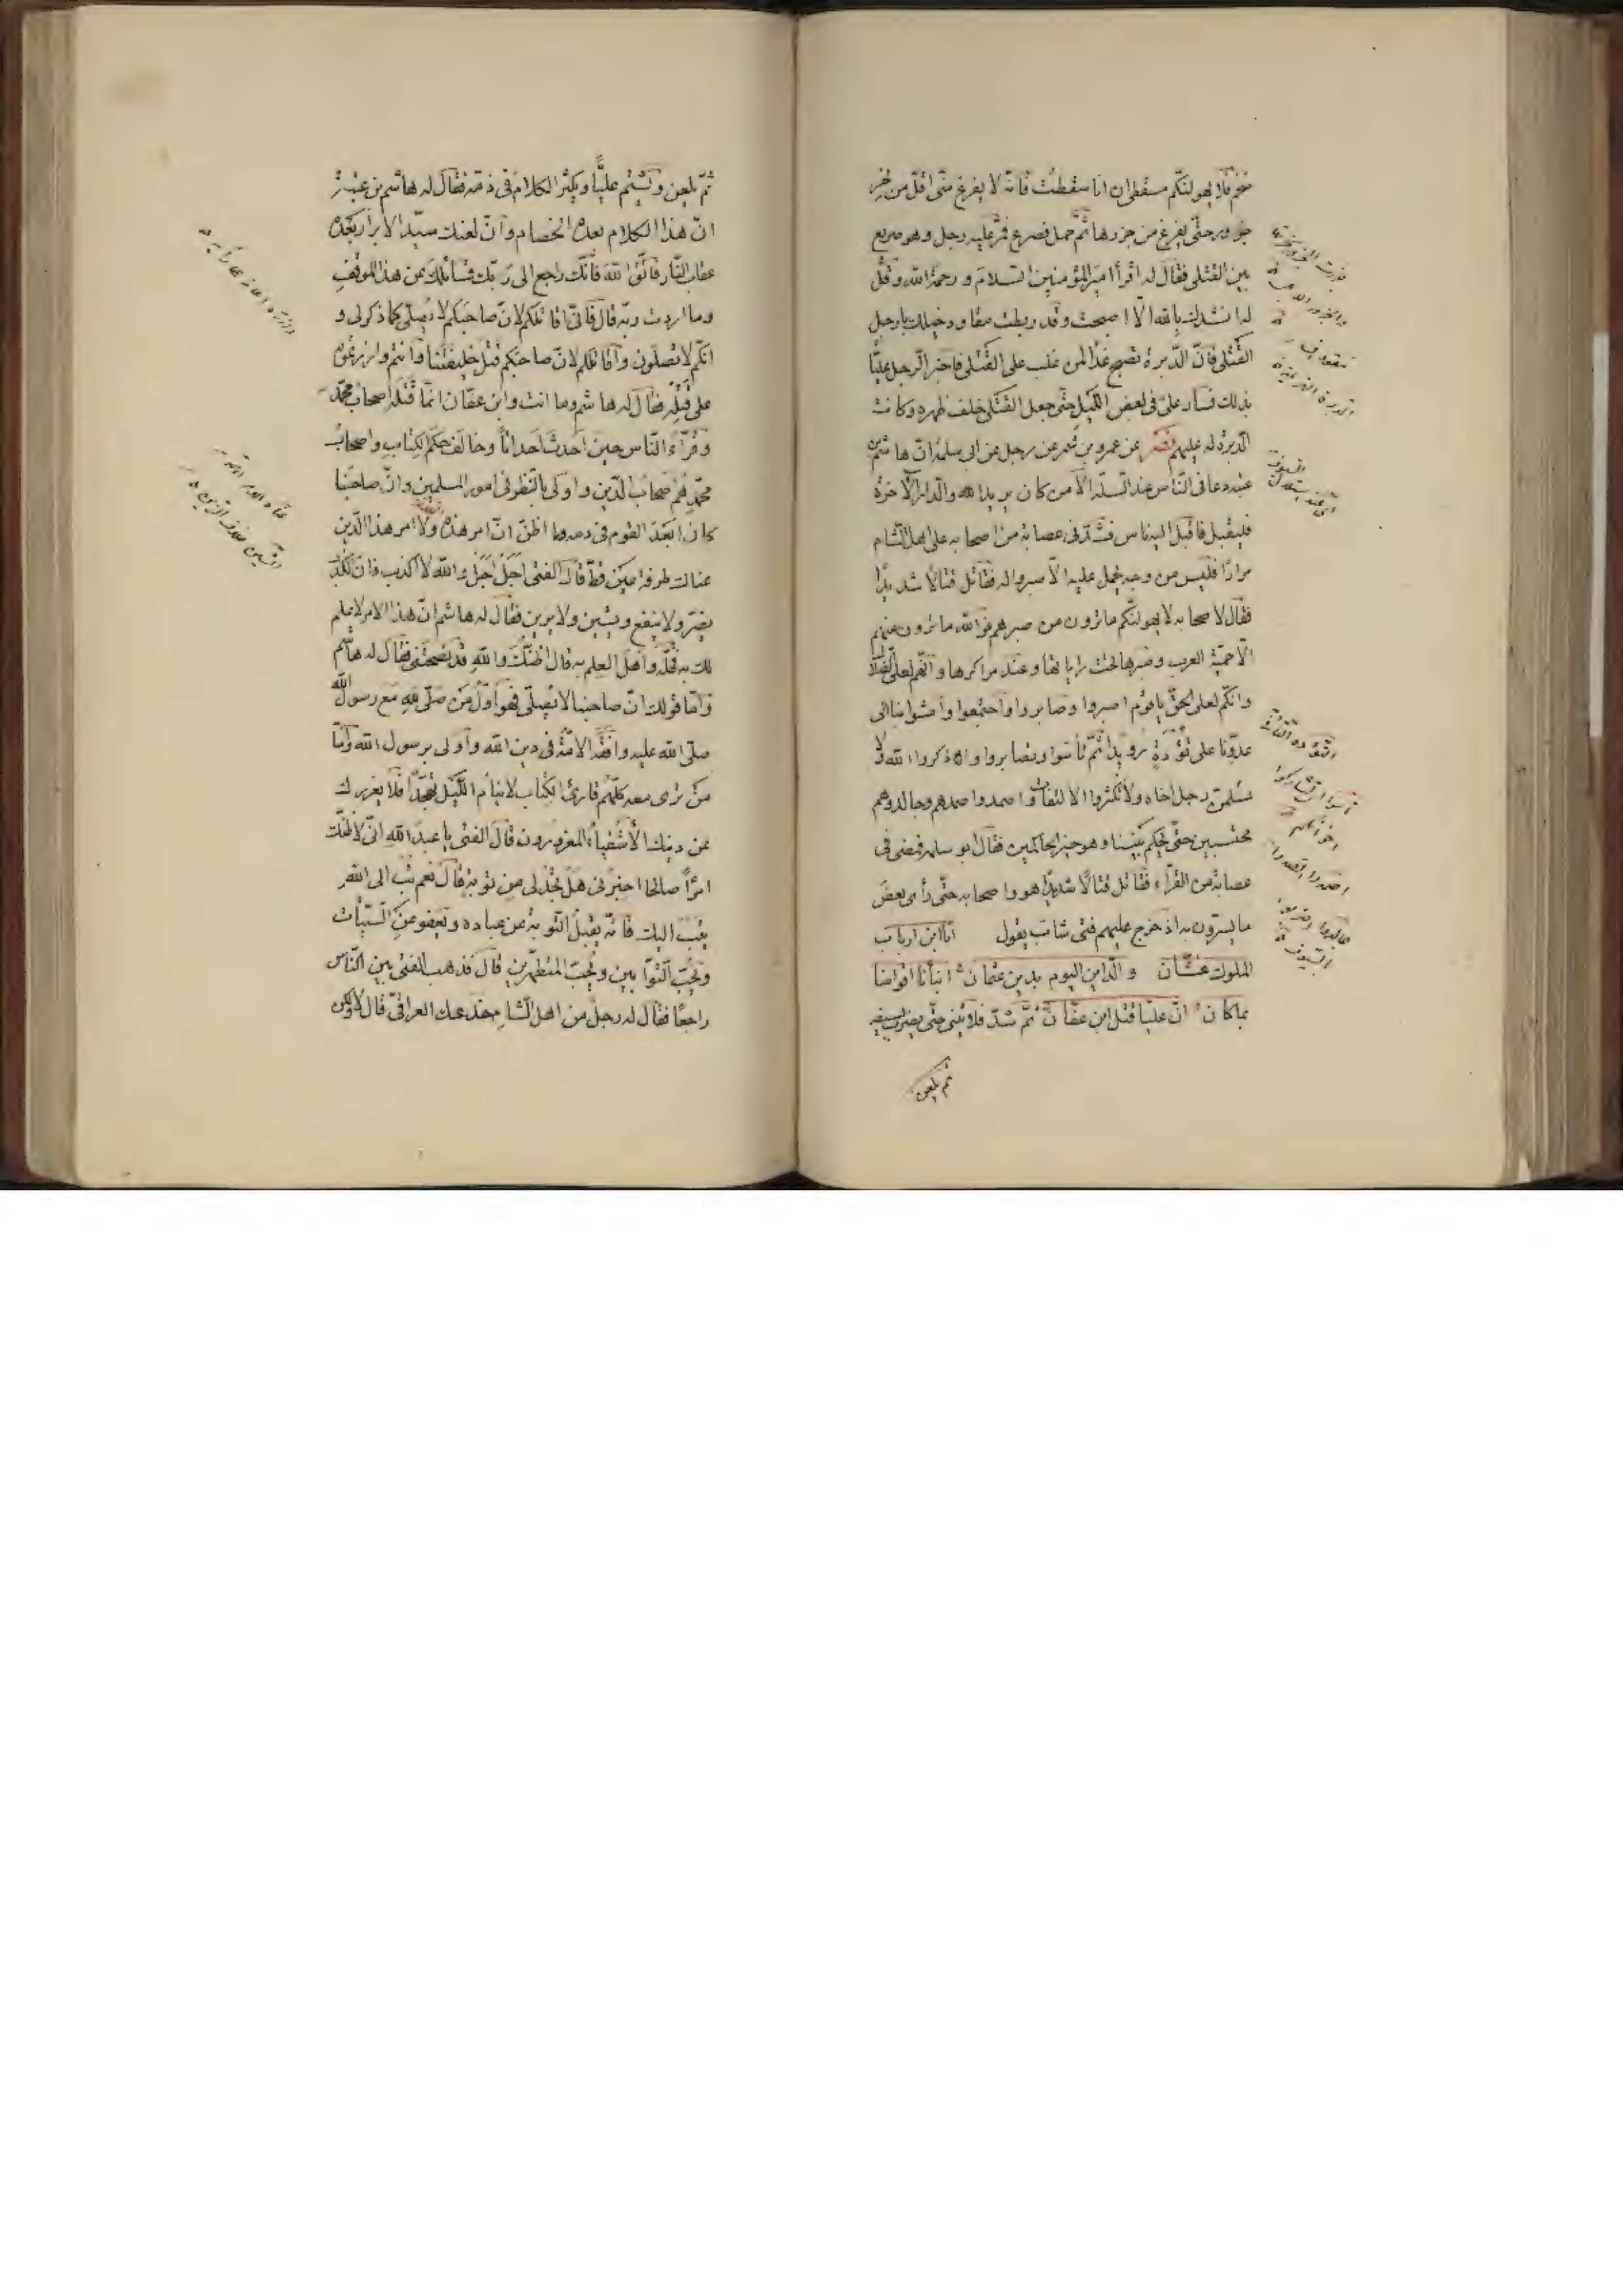 نحر فلا يهولنكم مسقطى ان انا سقطت فانه لا يفرغ منى اقل من نحر
جزور حتى يفرغ من جزرها ثم حمل فصرع فمر عليه رجل وهو صريع
بين القتلى فقال له اقرأ امير المؤمنين السلام و رحمة الله وقل
له انشدك بالله الا اصبحت وقد ربطت مقاود خيلك بارجل
القتلى فان الدبرة تصبح غدا لمن غلب على القتلى فاخبر الرجل عليا
بذلك فسار على فى بعض الليل حتى جعل القتلى خلف ظهره وكانت
الدبرة له عليهم نصر عن عمرو بن شمر عن رجل عن ابى سلمة ان هاشم بن
عتبه دعا فى الناس عند المساء الا من كان يريد الله والدار الآخرة
فليقبل فاقبل اليه ناس فشد فى عصابة من اصحابه على اهل الشام
مرارا فليس من وجه يحمل عليه الا صبروا له فقاتل قتالا شديدا
فقال لاصحابه لا يهولنكم ما ترون من صبرهم فوالله ما ترون منهم
الا حمية العرب وصبرها تحت راياتها وعند مراكزها وانهم لعلى الضلال
وانكم لعلى الحق يا قوم اصبروا وصابروا واجتمعوا وامشوا بنا الى
عدونا على تؤدة رويدا ثم تأسوا وتصابروا واذكروا الله ولا
يسلمن رجل اخاه ولا تكثروا الالتفات واصمدوا صمدهم وجالدوهم
محتسبين حتى يحكم بيننا وهو خير الحاكمين فقال ابو سلمه فمضى فى
عصابة من القرآء فقاتل قتالا شديدا هو واصحابه حتى رأى بعض
ما يسرون به اذ خرج عليهم فتى شاب يقول انا ابن ارباب
الملوك غسان والداين اليوم بدين عثمان انبأنا اقوامنا
بما كان ان عليا قتل ابن عفان ثم شد فلا يثنى حتى يضرب بسيفه
ثم يلعن
ثم يلعن ويشتم عليا ويكثر الكلام فى ذمه فقال له هاشم بن عتبة
ان هذا الكلام بعده الخصام وان لعنك سيد الابرار بعده
عقاب النار فاتق الله فانك راجع الى ربك فسائلك عن هذا الموقف
وما اردت به قال فانى اقاتلكم لان صاحبكم لا يصلى كما ذكر لى و
انكم لا تصلون واقاتلكم لان صاحبكم قتل خليفتنا وانتم وازرتموه
على قتله فقال له هاشم وما انت وابن عفان انما قتله اصحاب محمد
وقرآء الناس حين احدث احداثا وخالف حكم الكتاب واصحاب
محمد هم اصحاب الدين واولى بالنظر فى امور المسلمين وان صاحبنا
كان ابعد القوم فى دمه وما اظن ان امر هذه الامة ولا امر هذا الدين
عناك طرفة عين قط قال الفتى اجل اجل والله لا اكذب فان الكذب
يضر ولا ينفع ويشين ولا يزين فقال له هاشم ان هذا الامر لا علم
لك به فخله واهل العلم به قال اظنك والله قد نصحتنى فقال له هاشم
واما قولك ان صاحبنا لا يصلى فهو اول من صلى لله مع رسول الله
صلى الله عليه وافقه الامة فى دين الله واولى برسول الله واما
من ترى معه كلهم قارئ الكتاب لا ينام الليل تهجدا فلا يغررك
عن دينك الاشقياء المغرورون قال الفتى يا عبد الله انى لاظنك
امرأ صالحا اخبرنى هل تجد لى من توبة قال نعم تب الى الله
يتب اليك فانه يقبل التوبة عن عباده ويعفو عن السيئات
ويحب التوابين ويحب المتطهرين قال فذهب الفتى بين الناس
راجعا فقال له رجل من اهل الشام خدعك العراقى قال لا ولكن